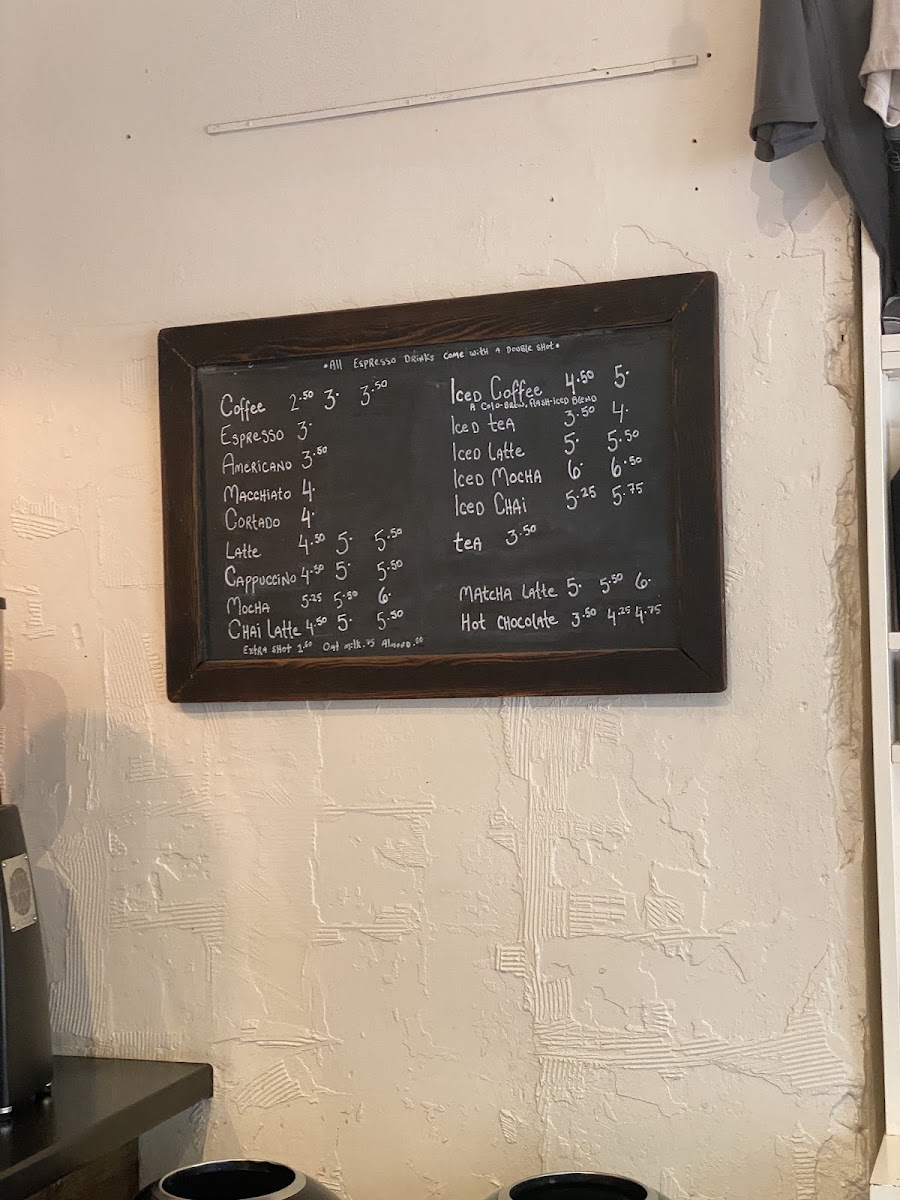 •All Espresso Drinks come with a double shot•
Coffee 2.50 3. 3.50
Espresso 3.
Americano 3.50
Macchiato 4.
Cortado 4.
Latte 4.50 5. 5.50
Cappuccino 4.50 5. 5.50
Mocha 5.25 5.50 6.
Chai Latte 4.50 5. 5.50
Extra shot 1.50 Oat milk .75 Almond .50
Iced Coffee 4.50 5.
A Cold-Brew, Flash-Iced Blend
Iced tea 3.50 4.
Iced Latte 5. 5.50
Iced Mocha 6. 6.50
Iced Chai 5.25 5.75
tea 3.50
Matcha Latte 5. 5.50 6.
Hot Chocolate 3.50 4.25 4.75